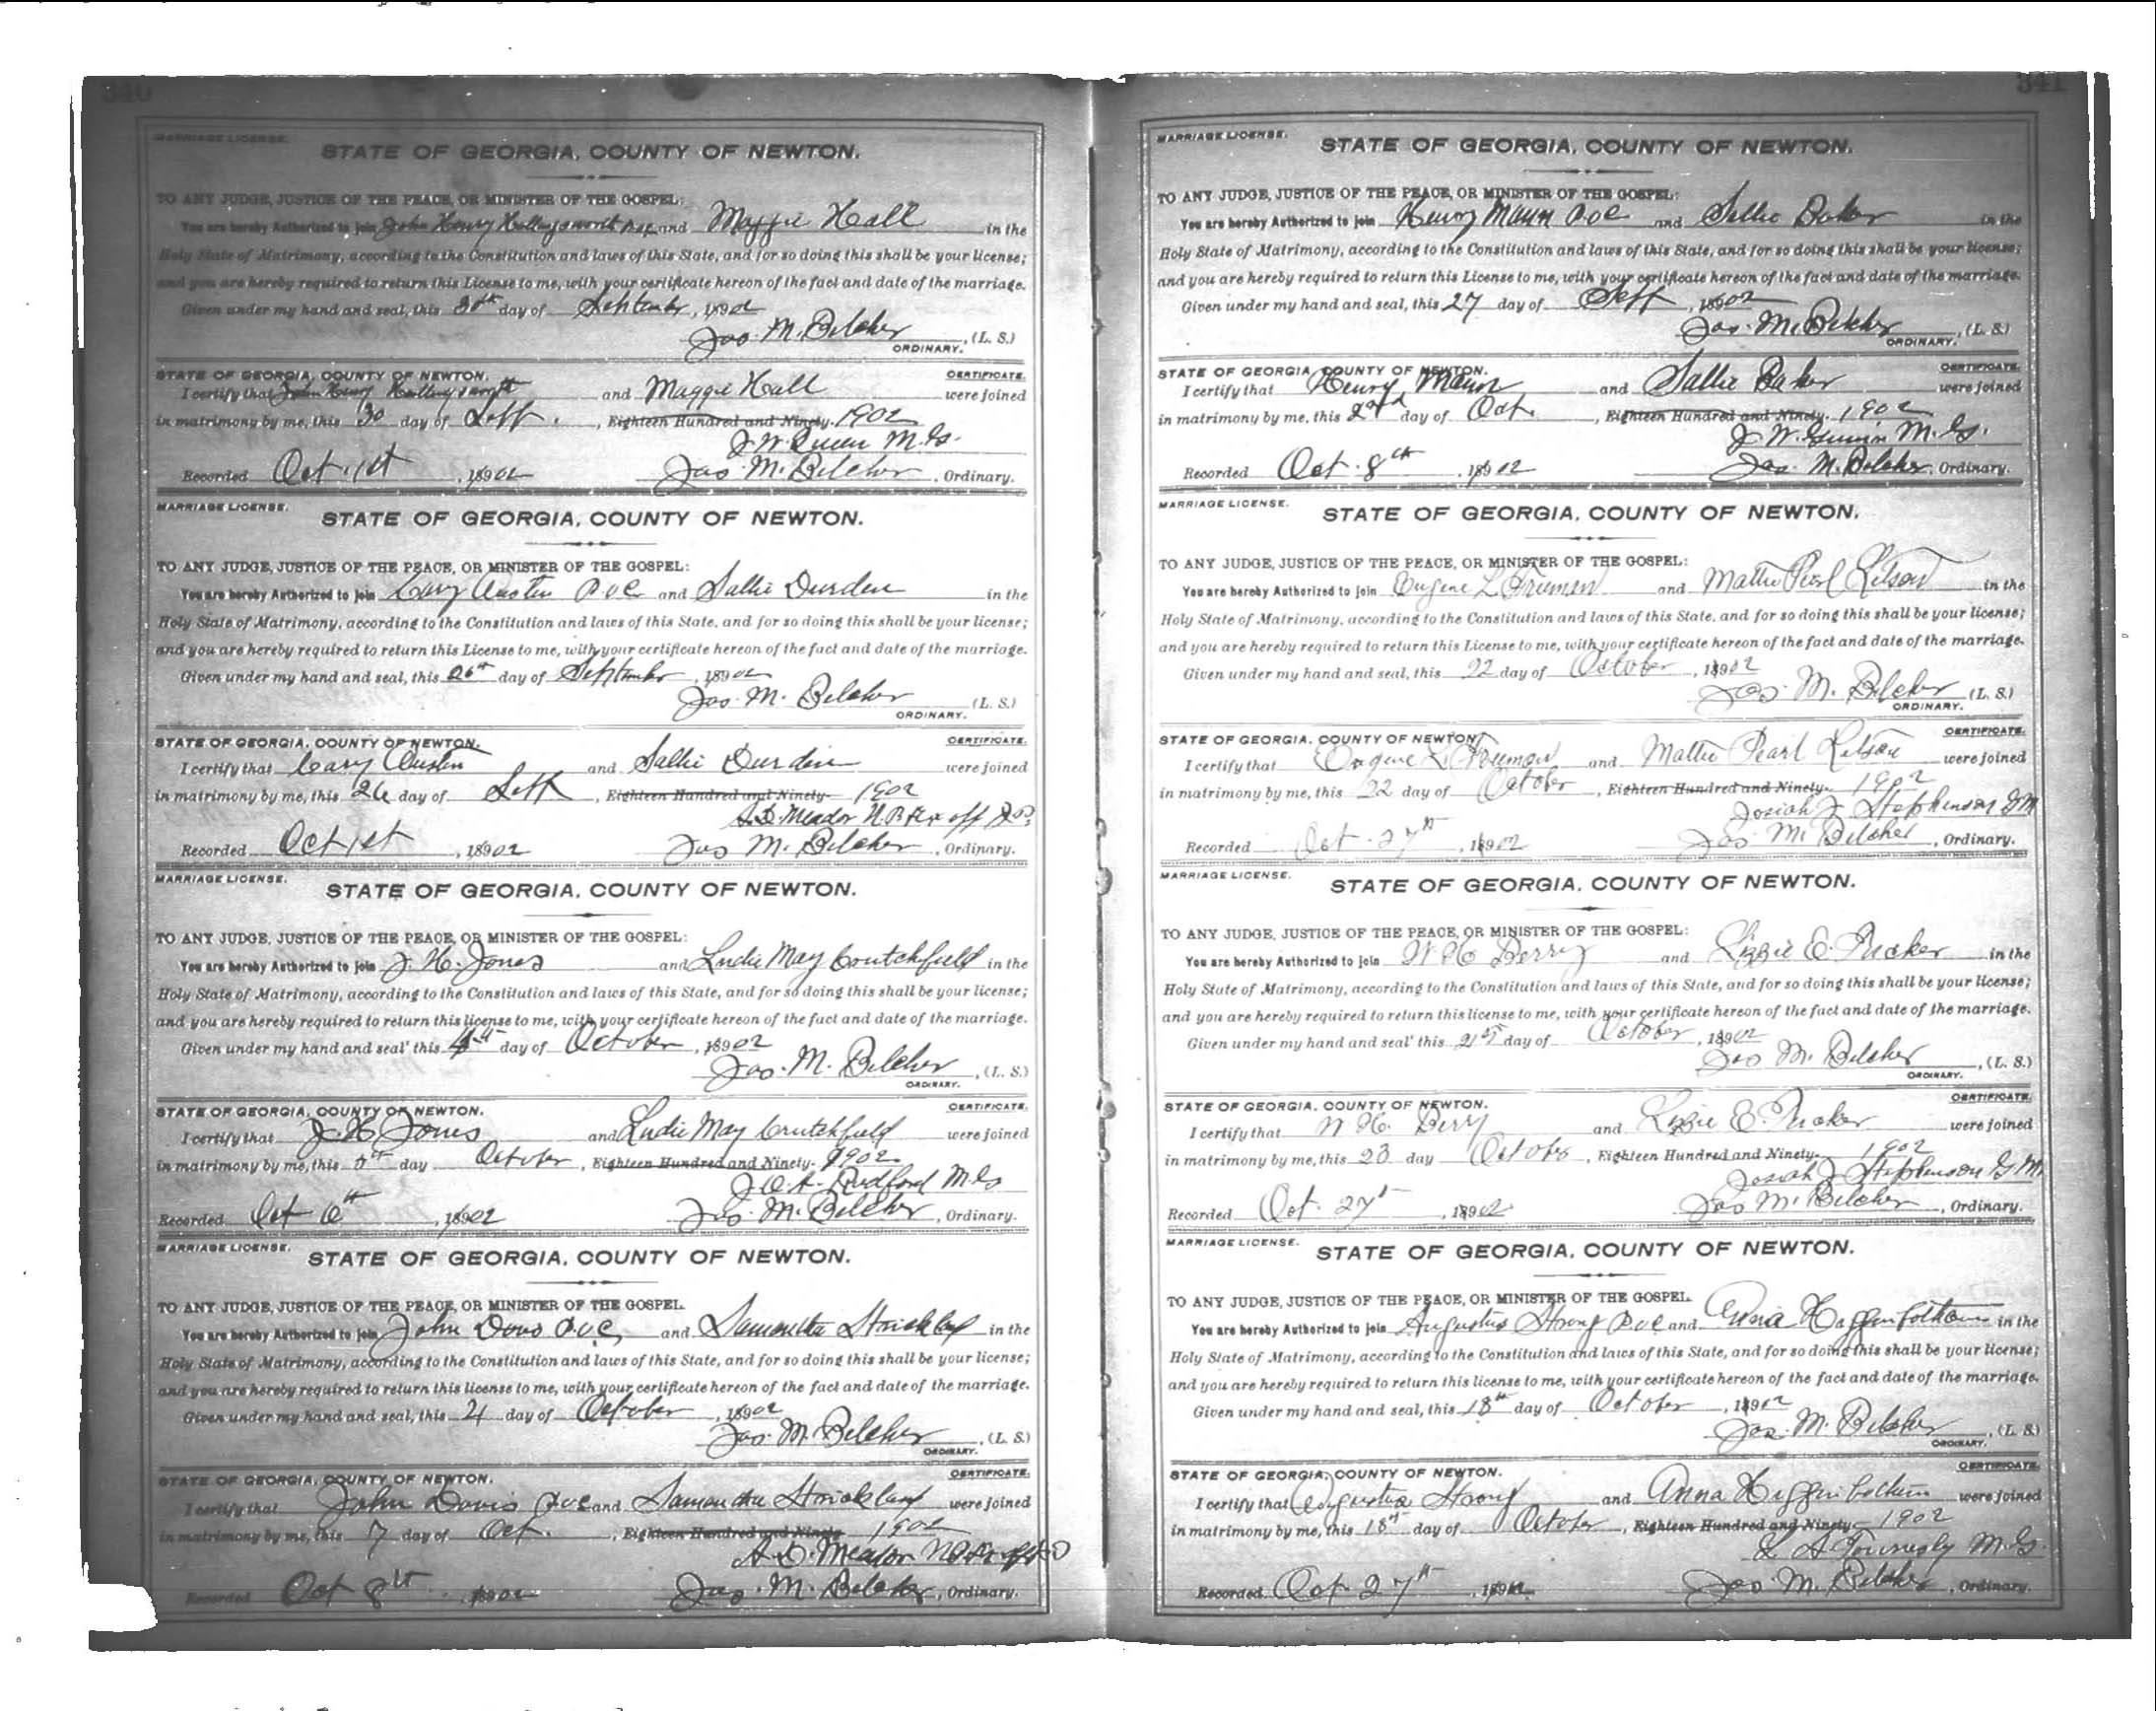 340
MARRIAGE LICENSE.
STATE OF GEORGIA, COUNTY OF NEWTON.
TO ANY JUDGE, JUSTICE OF THE PEACE, OR MINISTER OF THE GOSPEL:
You are hereby Authorized to join John Henry Hollingsworth and Maggie Hall in the
Holy State of Matrimony, according to the Constitution and laws of this State, and for so doing this shall be your license;
and you are hereby required to return this License to me, with your certificate hereon of the fact and date of the marriage.
Given under my hand and seal, this 30th day of September, 1902
Jas. M. Belcher, (L. S.)
ORDINARY.
STATE OF GEORGIA, COUNTY OF NEWTON. CERTIFICATE.
I certify that John Henry Hollingsworth and Maggie Hall were joined
in matrimony by me, this 30 day of Sept., Eighteen Hundred and Ninety- 1902
J. W. M. G.
Recorded Oct. 1st, 1902 Jas. M. Belcher, Ordinary.
MARRIAGE LICENSE.
STATE OF GEORGIA, COUNTY OF NEWTON.
TO ANY JUDGE, JUSTICE OF THE PEACE, OR MINISTER OF THE GOSPEL:
You are hereby Authorized to join Cary Austin P.O.C. and Sallie Durden in the
Holy State of Matrimony, according to the Constitution and laws of this State, and for so doing this shall be your license;
and you are hereby required to return this License to me, with your certificate hereon of the fact and date of the marriage.
Given under my hand and seal, this 26th day of September, 1902
Jas. M. Belcher (L. S.)
ORDINARY.
STATE OF GEORGIA, COUNTY OF NEWTON. CERTIFICATE.
I certify that Cary Austin and Sallie Durden were joined
in matrimony by me, this 26 day of Sept, Eighteen Hundred and Ninety- 1902
A. D. Meador N.P. & Ex off J.P.
Recorded Oct 1st, 1902 Jas M. Belcher, Ordinary.
MARRIAGE LICENSE.
STATE OF GEORGIA, COUNTY OF NEWTON.
TO ANY JUDGE, JUSTICE OF THE PEACE, OR MINISTER OF THE GOSPEL:
You are hereby Authorized to join J. H. Jones and Ludie May Crutchfield in the
Holy State of Matrimony, according to the Constitution and laws of this State, and for so doing this shall be your license;
and you are hereby required to return this license to me, with your certificate hereon of the fact and date of the marriage.
Given under my hand and seal' this 4th day of October, 1902
Jas. M. Belcher, (L. S.)
ORDINARY.
STATE OF GEORGIA, COUNTY OF NEWTON. CERTIFICATE.
I certify that J. H. Jones and Ludie May Crutchfield were joined
in matrimony by me, this 5th day October, Eighteen Hundred and Ninety- 1902
J. O. A. Radford M.G.
Recorded Oct 6th, 1902 Jas. M. Belcher, Ordinary.
MARRIAGE LICENSE.
STATE OF GEORGIA, COUNTY OF NEWTON.
TO ANY JUDGE, JUSTICE OF THE PEACE, OR MINISTER OF THE GOSPEL.
You are hereby Authorized to join John Davis P.O.C. and Samantha Strickland in the
Holy State of Matrimony, according to the Constitution and laws of this State, and for so doing this shall be your license;
and you are hereby required to return this license to me, with your certificate hereon of the fact and date of the marriage.
Given under my hand and seal, this 4 day of October, 1902
Jas. M. Belcher, (L. S.)
ORDINARY.
STATE OF GEORGIA, COUNTY OF NEWTON. CERTIFICATE.
I certify that John Davis P.O.C. and Samantha Strickland were joined
in matrimony by me, this 7 day of Oct., Eighteen Hundred and Ninety 1902
A. D. Meador
Recorded Oct 8th, 1902 Jas. M. Belcher, Ordinary.
341
MARRIAGE LICENSE.
STATE OF GEORGIA, COUNTY OF NEWTON.
TO ANY JUDGE, JUSTICE OF THE PEACE, OR MINISTER OF THE GOSPEL:
You are hereby Authorized to join Henry Mann P.O.C. and Sallie Baker in the
Holy State of Matrimony, according to the Constitution and laws of this State, and for so doing this shall be your license;
and you are hereby required to return this License to me, with your certificate hereon of the fact and date of the marriage.
Given under my hand and seal, this 27 day of Sept, 1902
Jas. M. Belcher, (L. S.)
ORDINARY.
STATE OF GEORGIA, COUNTY OF NEWTON. CERTIFICATE.
I certify that Henry Mann and Sallie Baker were joined
in matrimony by me, this 2nd day of Oct., Eighteen Hundred and Ninety. 1902
J. W. M. G.
Recorded Oct. 8th, 1902 Jas. M. Belcher, Ordinary.
MARRIAGE LICENSE.
STATE OF GEORGIA, COUNTY OF NEWTON.
TO ANY JUDGE, JUSTICE OF THE PEACE, OR MINISTER OF THE GOSPEL:
You are hereby Authorized to join Eugene L. Freeman and Mattie Pearl in the
Holy State of Matrimony, according to the Constitution and laws of this State, and for so doing this shall be your license;
and you are hereby required to return this License to me, with your certificate hereon of the fact and date of the marriage.
Given under my hand and seal, this 22 day of October, 1902
Jas. M. Belcher (L. S.)
ORDINARY.
STATE OF GEORGIA, COUNTY OF NEWTON. CERTIFICATE.
I certify that Eugene L. Freeman and Mattie Pearl were joined
in matrimony by me, this 22 day of October, Eighteen Hundred and Ninety- 1902
Josiah J Stephenson G.M.
Recorded Oct. 27th, 1902 Jas. M. Belcher, Ordinary.
MARRIAGE LICENSE.
STATE OF GEORGIA, COUNTY OF NEWTON.
TO ANY JUDGE, JUSTICE OF THE PEACE, OR MINISTER OF THE GOSPEL:
You are hereby Authorized to join W H Berry and Lizzie E. Tucker in the
Holy State of Matrimony, according to the Constitution and laws of this State, and for so doing this shall be your license;
and you are hereby required to return this license to me, with your certificate hereon of the fact and date of the marriage.
Given under my hand and seal' this 21st day of October, 1902
Jas M. Belcher, (L. S.)
ORDINARY.
STATE OF GEORGIA, COUNTY OF NEWTON. CERTIFICATE.
I certify that W H. Berry and Lizzie E. Tucker were joined
in matrimony by me, this 23 day October, Eighteen Hundred and Ninety- 1902
Josiah J Stephenson G.M.
Recorded Oct. 27th, 1902 Jas M. Belcher, Ordinary.
MARRIAGE LICENSE.
STATE OF GEORGIA, COUNTY OF NEWTON.
TO ANY JUDGE, JUSTICE OF THE PEACE, OR MINISTER OF THE GOSPEL.
You are hereby Authorized to join Augustus Strong P.O.C. and Anna Higginbotham in the
Holy State of Matrimony, according to the Constitution and laws of this State, and for so doing this shall be your license;
and you are hereby required to return this license to me, with your certificate hereon of the fact and date of the marriage.
Given under my hand and seal, this 18th day of October, 1902
Jas. M. Belcher, (L. S.)
ORDINARY.
STATE OF GEORGIA, COUNTY OF NEWTON. CERTIFICATE.
I certify that Augustus Strong and Anna Higginbotham were joined
in matrimony by me, this 18th day of October, Eighteen Hundred and Ninety- 1902
M.G.
Recorded Oct. 27th, 1902 Jas. M. Belcher, Ordinary.